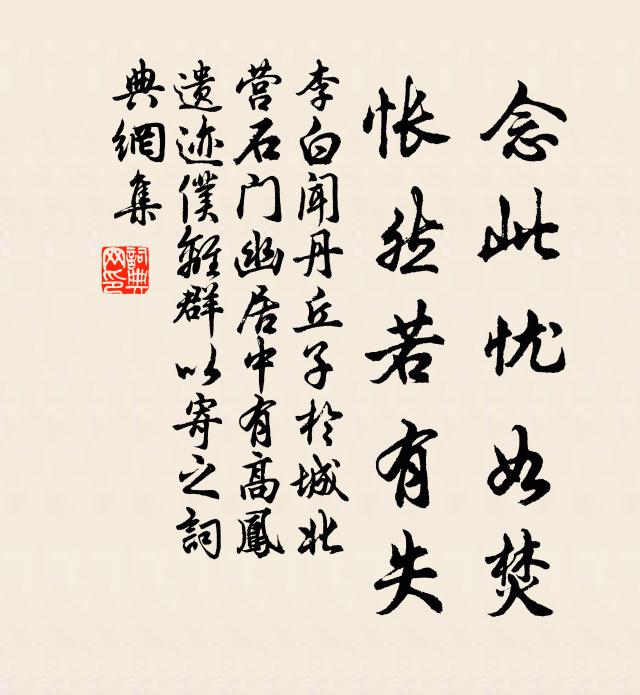 念此忧如焚
怅然若有失
李白闻丹丘子於城北
营石门幽居中有高鳳
遗迹僕離群以寄之詞
典網集
詞典
网印